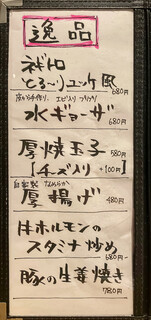 逸品
ネギトロ
とろ〜りユッケ風
680円
皮から手作り、エビ入りプリプリ
水ギョーザ
680円
厚焼玉子 580円
【チーズ入り +100円】
自家製 なめらか
厚揚げ 480円
牛ホルモンの
スタミナ炒め
680円
豚の生姜焼き
780円